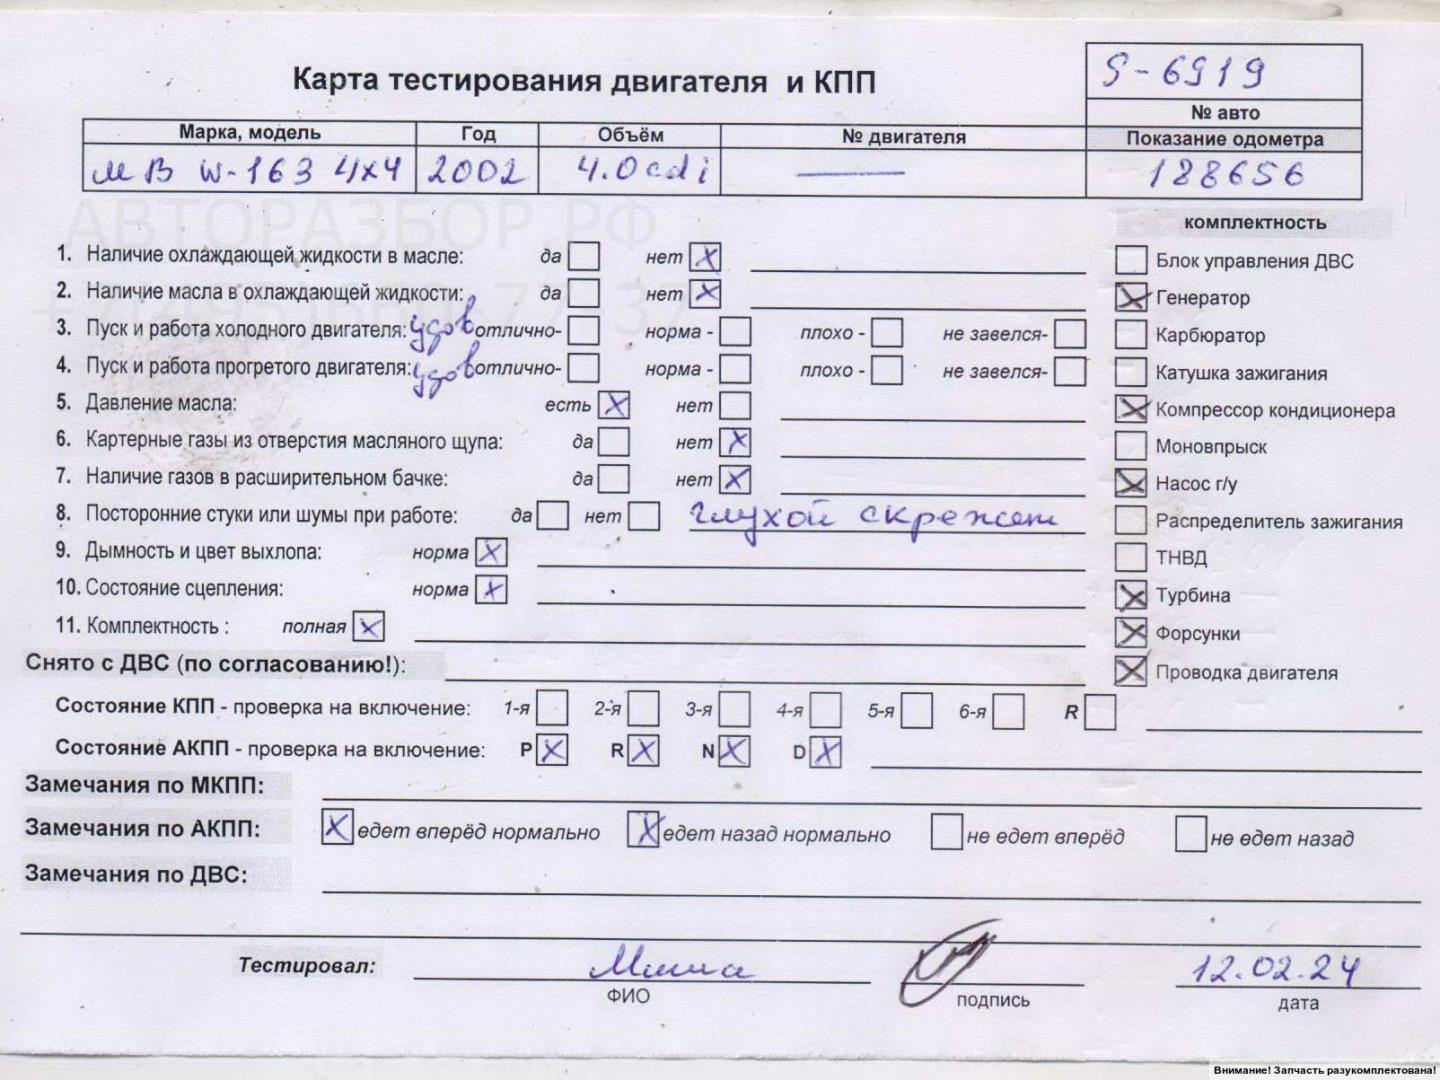 S-6919
Карта тестирования двигателя и КПП
№ авто
Марка, модель Год Объём № двигателя Показание одометра
МВ W-163 4x4 2002 4.0cdi — 188656
АВТОРАЗБОР.РФ
комплектность
1. Наличие охлаждающей жидкости в масле: да нет x
Блок управления ДВС
2. Наличие масла в охлаждающей жидкости: да нет x
x Генератор
3. Пуск и работа холодного двигателя: удов отлично- норма - плохо - не завелся-
Карбюратор
4. Пуск и работа прогретого двигателя: удов отлично- норма - плохо - не завелся-
Катушка зажигания
5. Давление масла: есть x нет
x Компрессор кондиционера
6. Картерные газы из отверстия масляного щупа: да нет x
Моновпрыск
7. Наличие газов в расширительном бачке: да нет x
x Насос г/у
8. Посторонние стуки или шумы при работе: да нет глухой скрежет
Распределитель зажигания
9. Дымность и цвет выхлопа: норма x
ТНВД
10. Состояние сцепления: норма x
x Турбина
11. Комплектность : полная x
x Форсунки
Снято с ДВС (по согласованию!):
x Проводка двигателя
Состояние КПП - проверка на включение: 1-я 2-я 3-я 4-я 5-я 6-я R
Состояние АКПП - проверка на включение: P x R x N x D x
Замечания по МКПП:
Замечания по АКПП: x едет вперёд нормально x едет назад нормально не едет вперёд не едет назад
Замечания по ДВС:
Тестировал: Миша 12.02.24
ФИО подпись дата
Внимание! Запчасть разукомплектована!